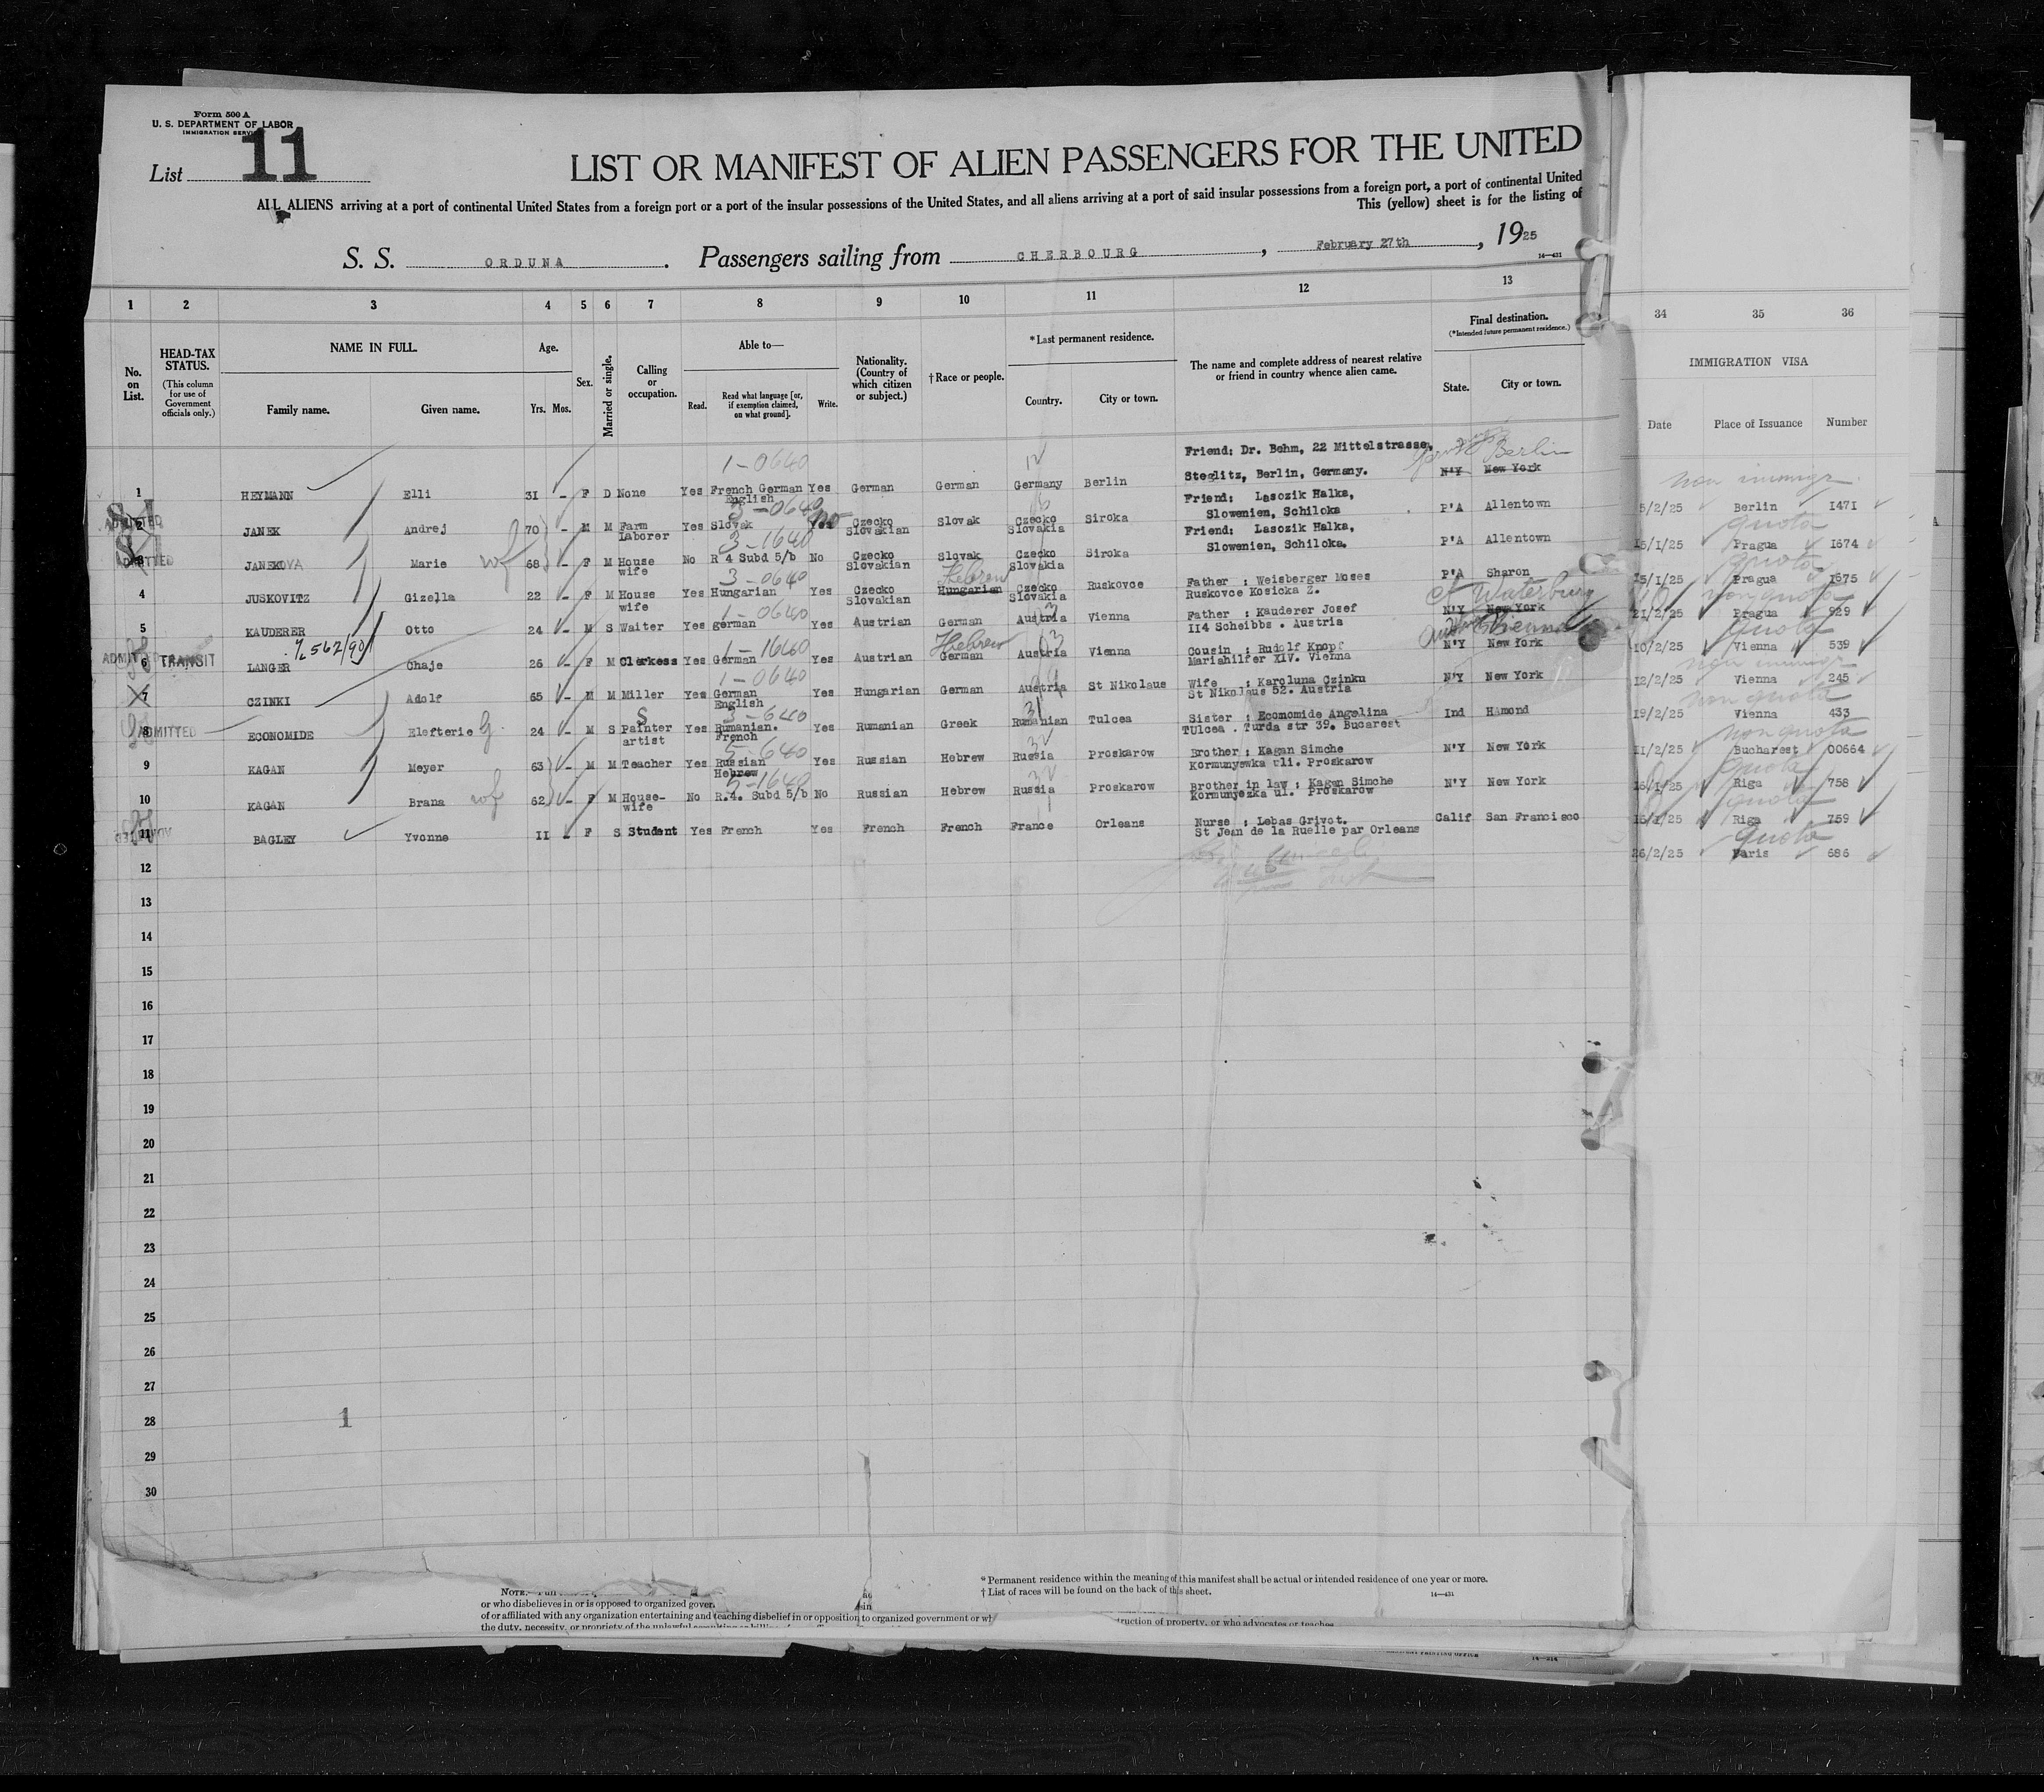 Form 500 A
U. S. DEPARTMENT OF LABOR
IMMIGRATION SERVICE
List 11
LIST OR MANIFEST OF ALIEN PASSENGERS FOR THE UNITED
ALL ALIENS arriving at a port of continental United States from a foreign port or a port of the insular possessions of the United States, and all aliens arriving at a port of said insular possessions from a foreign port, a port of continental United
This (yellow) sheet is for the listing of
S. S. ORDUNA . Passengers sailing from CHERBOURG , February 27th , 1925
14—431
1 2 3 4 5 6 7 8 9 10 11 12 13 34 35 36
No. on List.
HEAD-TAX STATUS.
(This column for use of Government officials only.)
NAME IN FULL.
Family name. Given name.
Age.
Yrs. Mos.
Sex.
Married or single.
Calling or occupation.
Able to—
Read. Read what language [or, if exemption claimed, on what ground]. Write.
Nationality. (Country of which citizen or subject.)
† Race or people.
*Last permanent residence.
Country. City or town.
The name and complete address of nearest relative or friend in country whence alien came.
Final destination.
(*Intended future permanent residence.)
State. City or town.
IMMIGRATION VISA
Date Place of Issuance Number
1-0640 12 Berlin non immigr
1 HEYMANN Elli 31 - F D None Yes French German English Yes German German Germany Berlin Friend: Dr. Bohm, 22 Mittelstrasse, Steglitz, Berlin, Germany. N'Y New York 5/2/25 Berlin 1471
3-0640 no quota
ADMITTED 2 JANEK Andrej 70 - M M Farm laborer Yes Slovak Yes Czecko Slovakian Slovak Czecko Slovakia Siroka Friend: Lasozik Halka, Slowenien, Schiloka P'A Allentown 15/1/25 Pragua 1674
3-1640 quota
3 JANEKOVA Marie wf 68 - F M House wife No R 4 Subd 5/b No Czecko Slovakian Slovak Czecko Slovakia Siroka Friend: Lasozik Halka, Slowenien, Schiloka. P'A Allentown 15/1/25 Pragua 1675
3-0640 Hebrew nonquota
4 JUSKOVITZ Gizella 22 - F M House wife Yes Hungarian Yes Czecko Slovakian Hungarian Czecko Slovakia Ruskovce Father : Weisberger Moses Ruskovce Kosicka Z. P'A Sharon 21/2/25 Pragua 929
1-0640 Ct Waterbury quota
5 KAUDERER Otto 24 - M S Waiter Yes german Yes Austrian German Austria Vienna Father : Kauderer Josef 114 Scheibbs . Austria N'Y New York 10/2/25 Vienna 539
1-1640 Hebrew Vienna non immigr
ADMITTED 6 TRANSIT LANGER Chaje 26 - F M Clerkess Yes German Yes Austrian German Austria Vienna Cousin : Rudolf Knopf Mariahilfer XIV. Vienna N'Y New York 12/2/25 Vienna 245
1-0640 nonquota
7 CZINKI Adolf 65 - M M Miller Yes German English Yes Hungarian German Austria St Nikolaus Wife : Karoluna Czinku St Nikolaus 52. Austria N'Y New York 19/2/25 Vienna 433
3-640 31 nonquota
ADMITTED 8 ECONOMIDE Elefterie G 24 - M S Painter artist Yes Rumanian. French Yes Rumanian Greek Rumanian Tulcea Sister : Economide Angelina Tulcea . Turda str 39. Bucarest Ind Hamond 11/2/25 Bucharest 00664
5-640 32 quota
9 KAGAN Meyer 63 - M M Teacher Yes Russian Hebrew Yes Russian Hebrew Russia Proskarow Brother : Kagan Simche Kormunyewka uli. Proskarow N'Y New York 16/1/25 Riga 758
5-1640 32 quota
10 KAGAN Brana wf 62 - F M House-wife No R.4. Subd 5/b No Russian Hebrew Russia Proskarow Brother in law : Kagan Simche Kormunyezka ul. Proskarow N'Y New York 16/1/25 Riga 759
quota
ADMITTED 11 BAGLEY Yvonne 11 - F S Student Yes French Yes French French France Orleans Nurse : Lebas Grivot. St Jean de la Ruelle par Orleans Calif San Francisco 26/2/25 Paris 686
12
13
14
15
16
17
18
19
20
21
22
23
24
25
26
27
28
29
30
1
* Permanent residence within the meaning of this manifest shall be actual or intended residence of one year or more.
† List of races will be found on the back of this sheet.
14—431
NOTE.
or who disbelieves in or is opposed to organized gover
of or affiliated with any organization entertaining and teaching disbelief in or opposition to organized government or wh
the duty, necessity, or propriety of the unlawful
truction of property, or who advocates or teaches
14—314